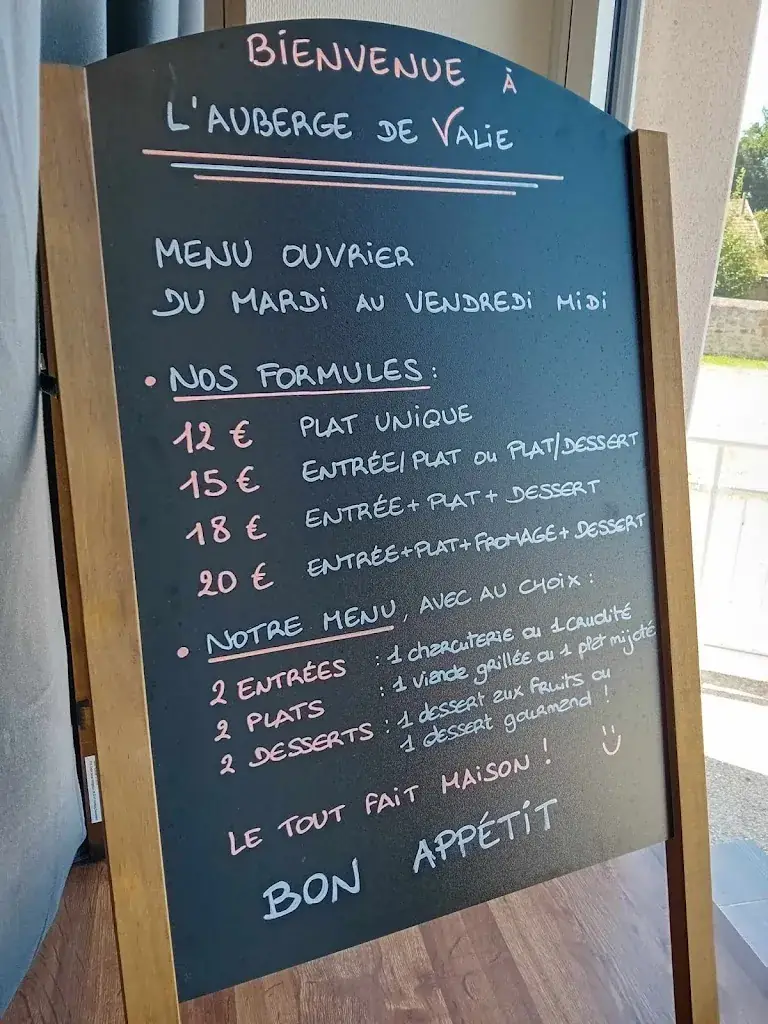 BIENVENUE À
L'AUBERGE DE VALIE
MENU OUVRIER
DU MARDI AU VENDREDI MIDI
• NOS FORMULES :
12 € PLAT UNIQUE
15 € ENTRÉE/PLAT OU PLAT/DESSERT
18 € ENTRÉE+PLAT+DESSERT
20 € ENTRÉE+PLAT+FROMAGE+DESSERT
• NOTRE MENU, AVEC AU CHOIX :
2 ENTRÉES : 1 charcuterie ou 1 crudité
2 PLATS : 1 viande grillée ou 1 plat mijoté
2 DESSERTS : 1 dessert aux fruits ou
1 dessert gourmand !
LE TOUT FAIT MAISON !
BON APPÉTIT